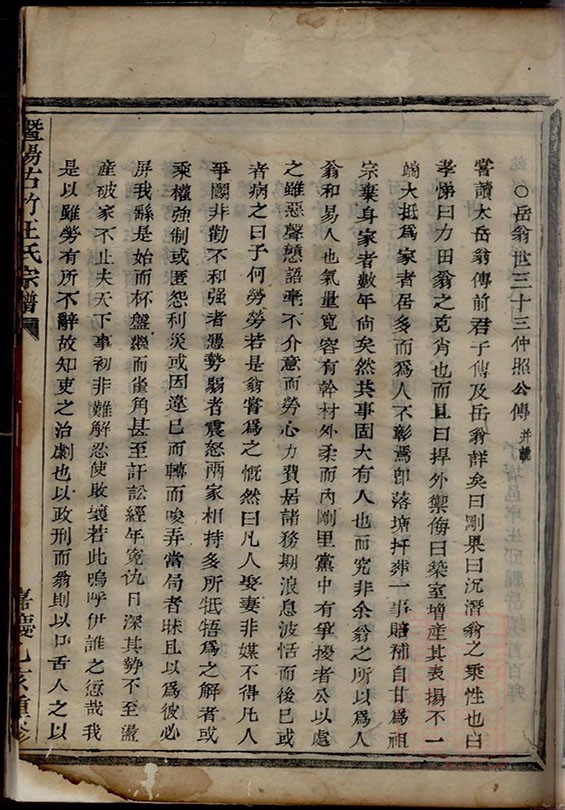 ○岳翁世三十三仲照公傳并讚
嘗讀太岳翁傳前君子傳及岳翁詳矣曰剛果曰沉潛翁之秉性也曰
孝悌曰力田翁之克肖也而且曰捍外禦侮曰築室增產其表揚不一
端大抵爲家者居多而爲人不彰焉卽落塘扦葬一事賠補自甘爲祖
宗棄身家者數年尙矣然共事固大有人也而究非余翁之所以爲人
翁和易人也氣量寬容有幹材外柔而內剛里黨中有爭擾者公以處
之雖惡聲戇語亳不介意而勞心力費居諸務期浪息波恬而後已或
者病之曰子何勞勞若是翁嘗爲之慨然曰凡人娶妻非媒不得凡人
爭鬬非勸不和强者憑勢弱者震怒兩家相持多所牴牾爲之解者或
乘權強制或匿怨利災或因遠已而轉而唆弄當局者昧且以爲彼必
屏我繇是始而杯盤繼而雀角甚至訐訟經年寃仇日深其勢不至盪
產破家不止夫天下事初非難解忍使敗壞若此嗚呼伊誰之愆哉我
是以雖勞有所不辭故知吏之治劇也以政刑而翁則以口舌人之以
暨陽古竹王氏宗譜
嘉慶乙亥重修